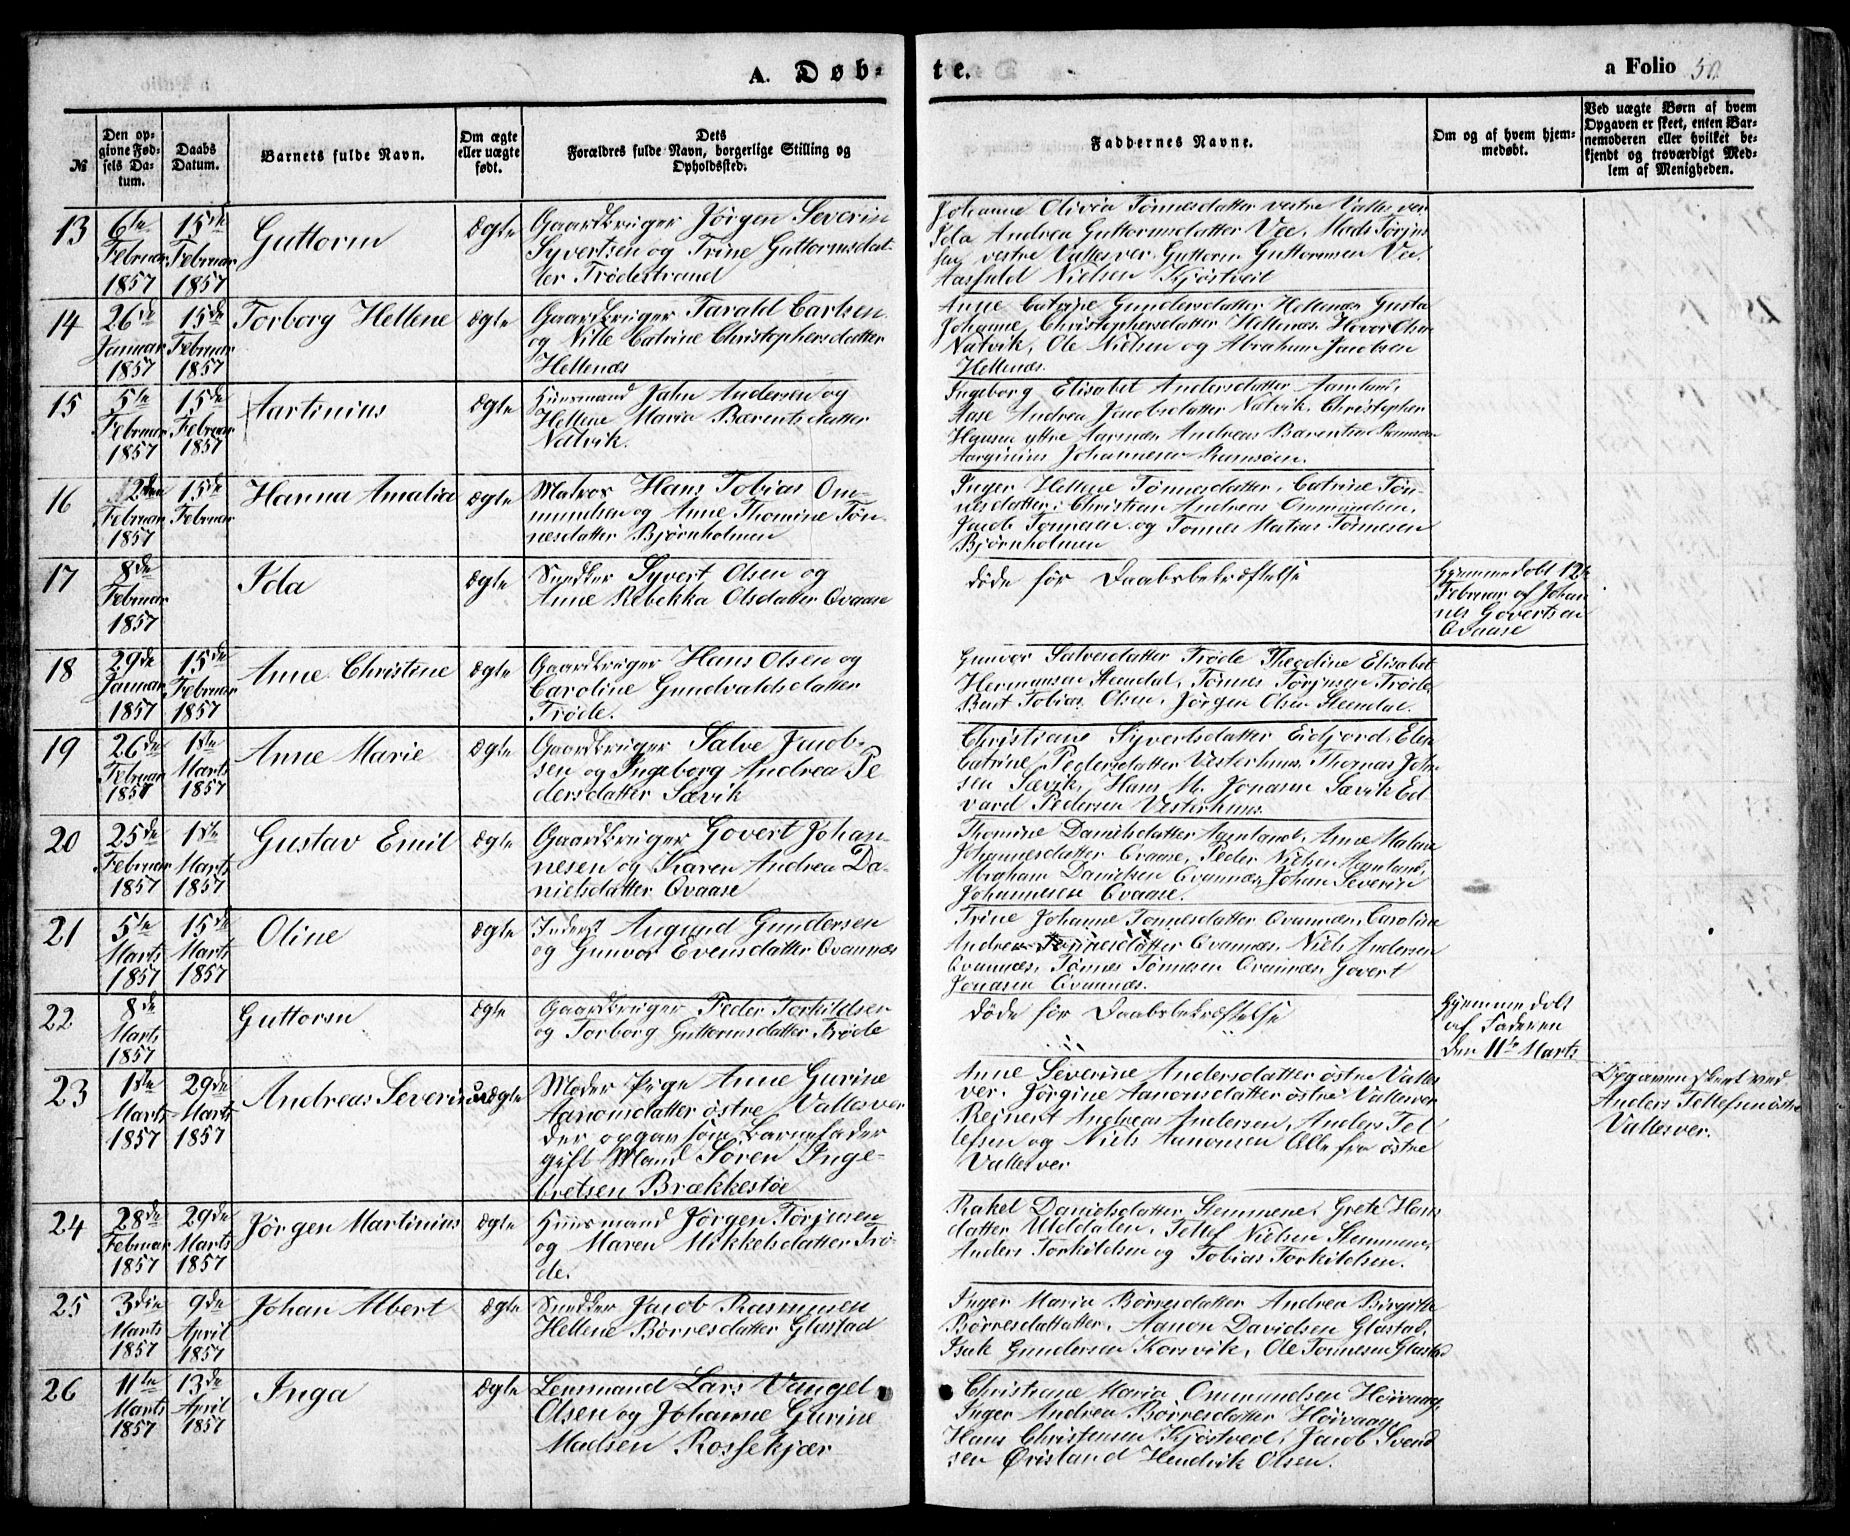 A. Døb-
te.
a Folio 50
№
Den op-
givne Fød-
sels Da-
tum.
Daabs
Datum.
Barnets fulde Navn.
Om ægte
eller uægte
født.
Dets
Forældres fulde Navn, borgerlige Stilling og
Opholdssted.
Faddernes Navne.
Om og af hvem hjem-
medøbt.
Ved uægte Børn af hvem
Opgaven er skeet, enten Bar-
nemoderen eller hvilket be-
kjendt og troværdigt Med-
lem af Menigheden.
13
6te
Februar
1857
15de
Februar
1857
Guttorm
Ægte
Gaardbruger Jörgen Severin
Syvertsen og Trine Guttormsdat-
ter Trödestrand
Johanne Olivia Tönnesdatter vestre Vallesver
Ida Andrea Guttormsdatter Vee, Mads Törjus
sen vestre Vallesver Guttorm Guttormsen Vee
Aasfuld Nielsen Kjöstveit
14
26de
Januar
1857
15de
Februar
1857
Torborg Hellene
Ægte
Gaardbruger Tarald Carlsen
og Nille Catrine Christophersdatter
Hellenæs
Anne Catrine Gundersdatter Hellenæs Gusta
Johanne Christophersdatter Hellenæs, Hovor Olsen
Natvik, Ole Nielsen og Abraham Jacobsen
Hellenæs.
15
5te
Februar
1857
15de
Februar
1857
Martinius
Ægte
Huusmand Jahn Andersen og
Hellene Maria Bærentsdatter
Natvik.
Ingeborg Elisabet Andersdatter Aamland,
Aase Andrea Jacobsdatter Natvik, Christopher
Hansen yttre Aarnæs Andreas Barentsen Ramsöen
Johannesen Ramsöen.
16
12den
Februar
1857
15de
Februar
Hanna Amalia
Ægte
Matros Hans Tobias Om-
mundsen og Anne Thomine Tön-
nesdatter Björnholmen
Inger Hellene Tönnesdatter, Catrine Tön-
nesdatter, Christian Andreas Ommundsen,
Jacob Tönnesen og Tönnes Matias Tönnesen
Björnholmen
17
8de
Februar
1857
Ida
Ægte
Snedker Syvert Olsen og
Anne Rebekka Olsdatter Qvaase
döde för Daabsbekræftelse
Hjemmedöbt 12te
Februar af Johan
nes Govertsen
Qvaase
18
29de
Januar
1857
15de
Februar
1857
Anne Christine
Ægte
Gaardbruger Hans Olsen og
Caroline Gundvaldsdatter
Tröde.
Gunvor Salvesdatter Tröde Theodine Elisabet
Hermansen Steendal, Tönnes Törjusen Tröde,
Bent Tobias Olsen, Jörgen Olsen Steendal.
19
26de
Februar
1857
1ste
Marts
1857
Anne Marie
Ægte
Gaardbruger Salve Jacob-
sen og Ingeborg Andrea Pe
dersdatter Sævik
Christiane Syvertsdatter Eidjord, Elen
Catrine Pedersdatter Vesterhuus, Thomas Joh
sen Sævik, Hans M. Jonassn Sævik Ed
vard Pedersen Vesterhuus.
20
25de
Februar
1857
1ste
Marts
1857
Gustav Emil
Ægte
Gaardbruger Govert Johan-
nesen og Karen Andrea Da-
nielsdatter Qvaase
Thomine Danielsdatter Aamland, Anne Malene
Johannesdatter Qvaase, Peder Nielsen Aamland,
Abraham Danielsen Qvannæs, Johan Severin
Johannesen Qvaase.
21
5te
Marts
1857
15de
Marts
1857
Oline
Ægte
Inderst Augund Gundersen
og Gunvor Evensdatter Qvannæs
Trine Johanne Tönnesdatter Qvannæs, Caroline
Andrea Tönnesdatter Qvannæs, Niels Andersen
Qvannæs, Tönnes Tönnesen Qvannæs, Govert
Jonasen Qvannæs.
22
8de
Marts
1857
Guttorm
Ægte
Gaardbruger Peder Torkildsen
og Torborg Guttormsdatter Tröde
Döde för Daabsbekræftelse
Hjemmedöbt
af Faderen
den 11te Marts
23
1ste
Marts
1857
29de
Marts
1857
Andreas Severin
uægte
Moder Pige Anne Gurine
Aanonsdatter östre Vallesver
der opgav som Barnefader
gift Mand Sören Inge-
bretsen Brækkestöe
Anne Severine Andersdatter östre Valles
ver. Jörgine Aanonsdatter östre Vallesver
Reinert Andreas Andersen, Anders Tel
lefsen og Niels Aanonsen Alle fra östre
Vallesver
Opgaven skeet ved
Anders Tellefsen östre
Vallesver.
24
28de
Februar
1857
29de
Marts
1857
Jörgen Martinius
Ægte
Huusmand Jörgen Törjusen
og Maren Mikkelsdatter Trö-
de.
Rakel Danielsdatter Stemmene, Grete Hans
datter Uldalen, Tellef Nielsen Stemmen,
Anders Torkildsen og Tobias Torkildsen.
25
3die
Marts
1857
9de
April
1857
Johan Albert
Ægte
Snedker Jacob Rasmusen
Hellene Börresdatter Glastad
Inger Maria Börresdatter Andrea Birgitte
Börresdatter, Aanon Davidsen Glastad,
Isak Gundersen Korsvik, Ole Tönnesen Glastad
26
11te
Marts
1857
13de
April
1857
Inga
Ægte
Lensmand Lars Vangel
Olsen og Johanne Gurine
Madsen Rossekjær
Christiane Maria Ommundsen Höivaag
Inger Andrea Börresdatter Höivaag,
Hans Christensen Kjöstved, Jacob Svend
sen Örisland Hendrik Olsen.